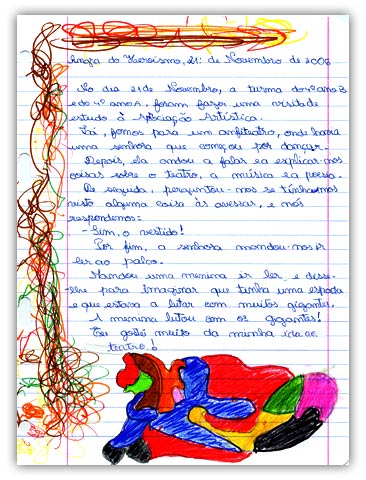 Angra do Heroísmo, 21: de Novembro de 2006
No dia 21 de Novembro, a turma do 4º ano B
e do 4º ano A, foram fazer uma visita de
estudo à Apreciação Artística.
Lá, fomos para um anfiteatro, onde havia
uma senhora que começou por dançar.
Depois, ela andou a falar e a explicar-nos
coisas sobre o teatro, a música e a poesia.
De seguida, perguntou-nos se tínhamos
visto alguma coisa às avessas, e nós
respondemos:
- Sim, o vestido!
Por fim, a senhora mandou-nos ir
ler ao palco.
Mandou uma menina ir ler e disse-
-lhe para imaginar que tinha uma espada
e que estava a lutar com muitos gigantes.
A menina lutou com os gigantes!
Eu gostei muito da minha ida ao
teatro!